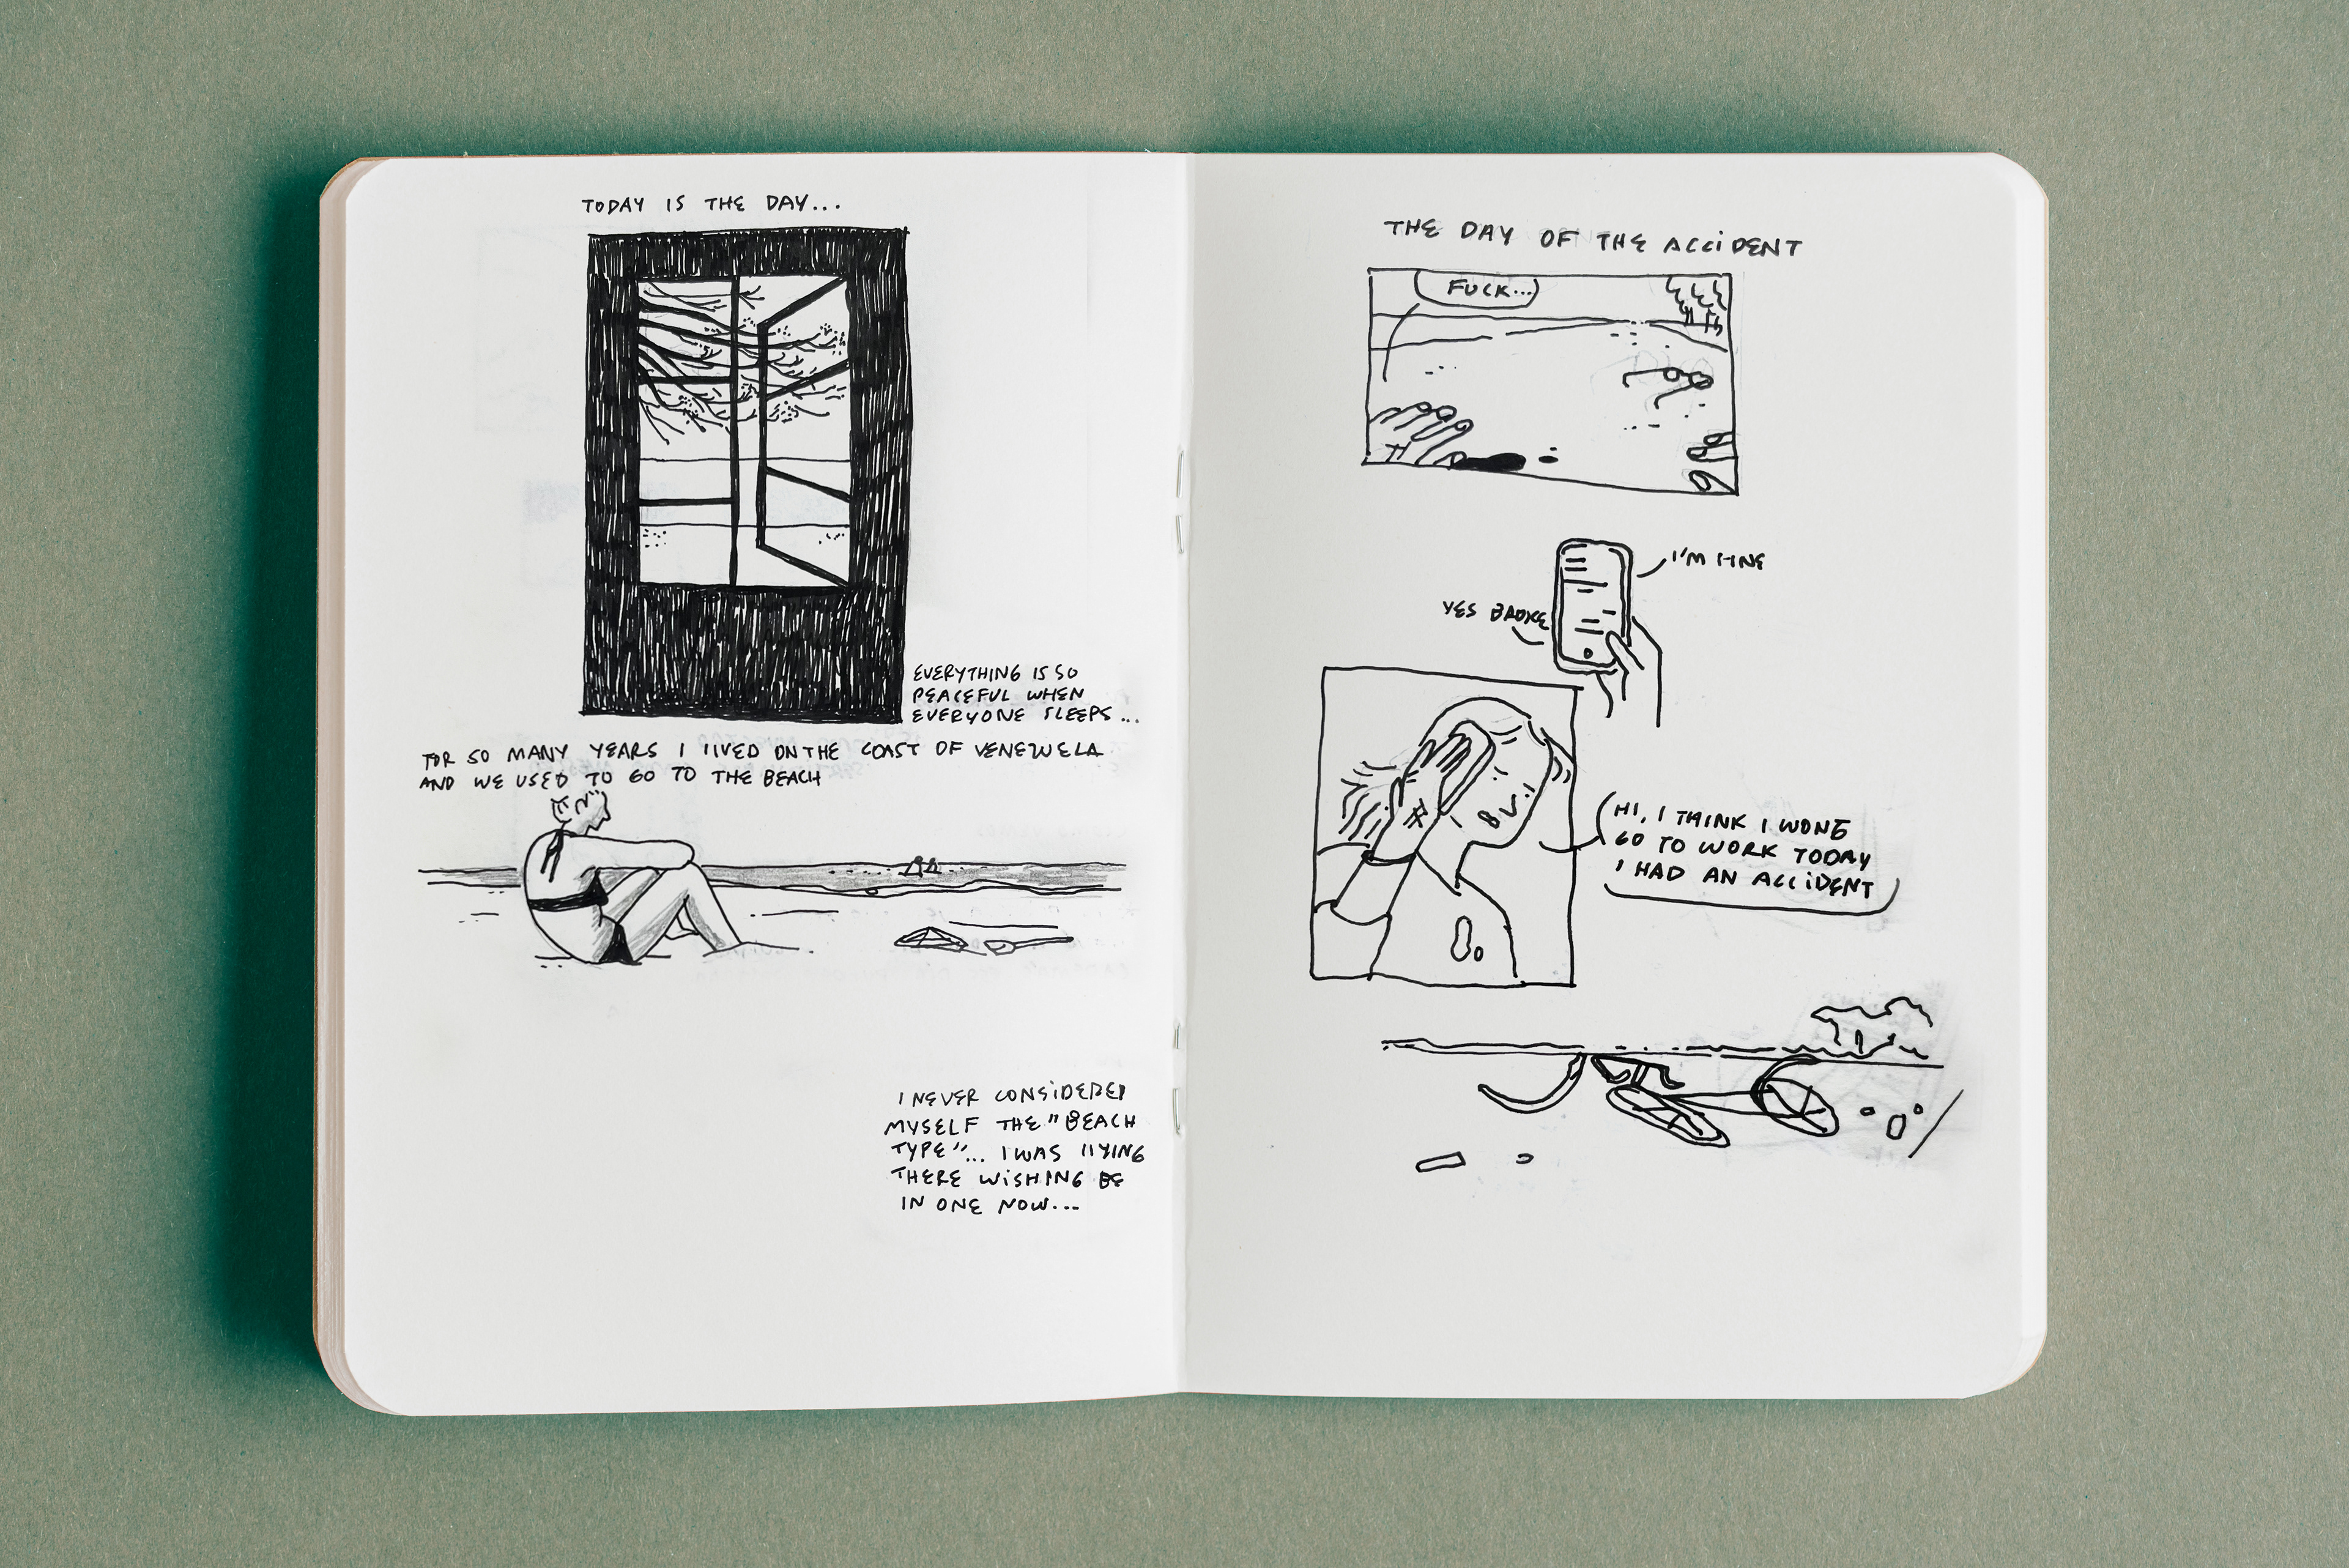 TODAY IS THE DAY...
EVERYTHING IS SO
PEACEFUL WHEN
EVERYONE SLEEPS...
FOR SO MANY YEARS I LIVED ON THE COAST OF VENEZUELA
AND WE USED TO GO TO THE BEACH
I NEVER CONSIDERED
MYSELF THE "BEACH
TYPE"... I WAS LLYING
THERE WISHING BE
IN ONE NOW...
THE DAY OF THE ACCIDENT
FUCK...
I'M FINE
YES BROKE
HI, I THINK I WONE
GO TO WORK TODAY
I HAD AN ACCIDENT